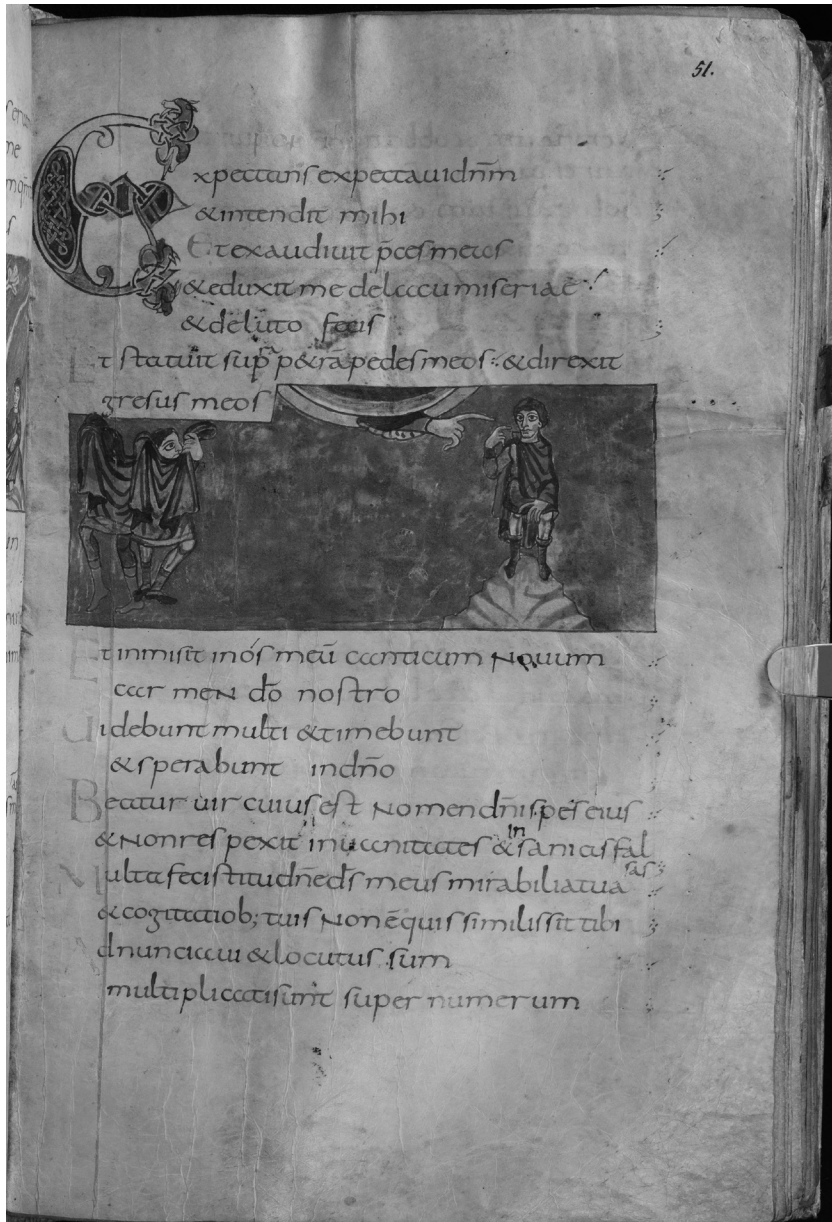 51.
Expectans expectaui dnm̄
& intendit mihi
Et exaudiuit p̄ces meas
& eduxit me delacu miseriae
& deluto fecis
Et statuit sup p&rā pedes meos & direxit
gresus meos
Et inmisit in os meū canticum nouum
carmen dō nostro
Uidebunt multi & timebunt
& sperabunt in dnō
Beatus uir cuius est nomen dnī spes eius
& non respexit in uanitates & in sanias fal
sas
Multa fecisti tu dnē ds̄ meus mirabilia tua
& cogitatiob; tuis non ē quis similis sit tibi
Adnunciaui & locutus sum
multiplicati sunt super numerum